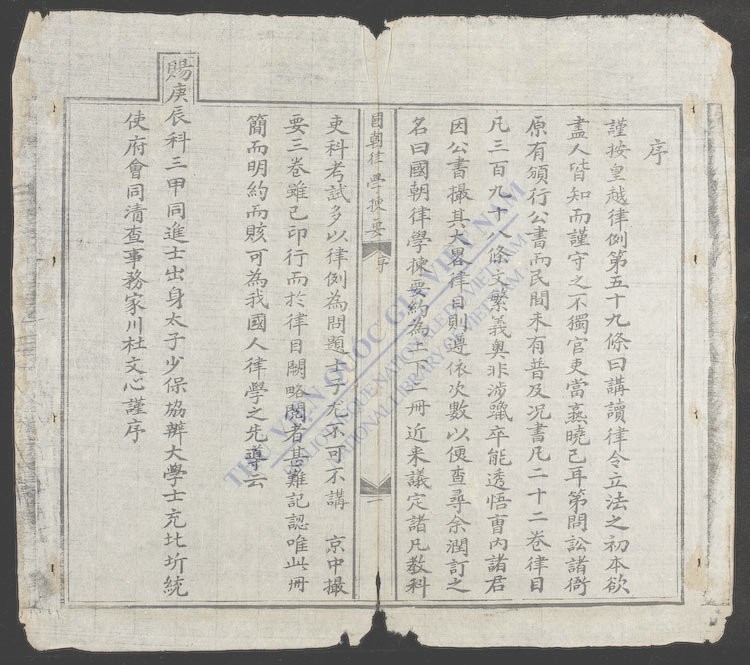 序
謹按皇越律例第五十九條曰講讀律令立法之初本欲
盡人皆知而謹守之不獨官吏當熹曉已耳第閱訟諸衙
原有頒行公書而民間未有普及况書凡二十二卷律目
凡三百九十八條文繁義奧非涉躐卒能透悟曺內諸君
因公書撮其大畧律目則遵依次數以便查尋余潤訂之
名曰國朝律學揀要約為上下二冊近来議定諸凡教科
國朝律學揀要 序 一
吏科考試多以律例為問題士子尤不可不講 京中撮
要三卷雖已印行而於律目闕略閱者甚難記認唯此冊
簡而明約而賅可為我國人律學之先導云
賜庚辰科三甲同進士出身太子少保協辦大學士充北圻統
使府會同清查事務家川杜文心謹序
THƯ VIỆN QUỐC GIA VIỆT NAM
NATIONAL LIBRARY OF VIETNAM